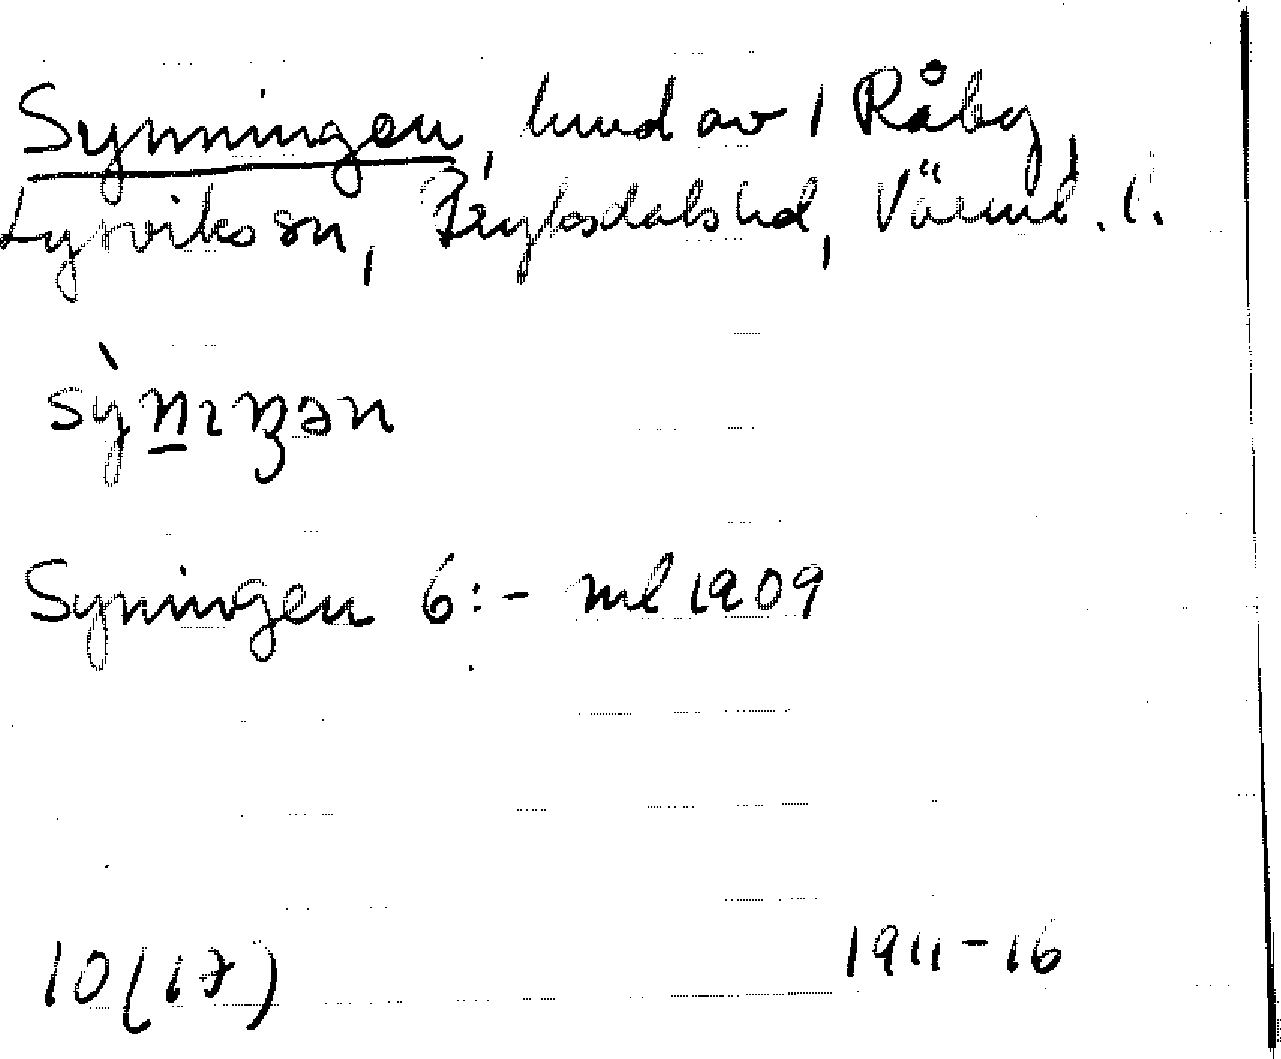 Synningen, hmd av 1 Råby,
Lysviks sn, Fryksdals hd, Värml. l.
sỳnıŋən
Syningen 6:- ml 1909
10(17) 1911-16